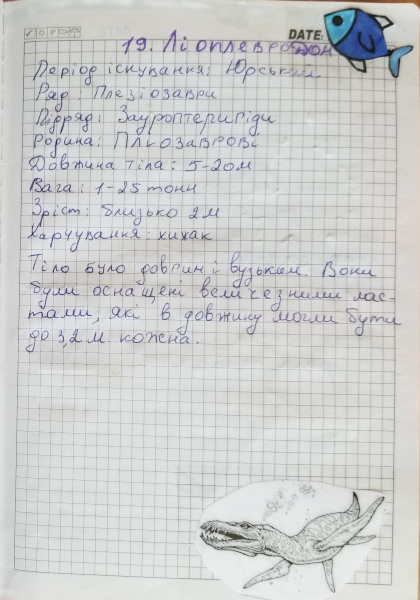 DATE:
19. Ліоплевродон
Період існування: Юрський
Ряд: Плезіозаври
Підряд: Зауроптеригіди
Родина: Пліозаврові
Довжина тіла: 5-20м
Вага: 1-25 тонн
Зріст: близько 2м
Харчування: хижак
Тіло було довгим і вузьким. Вони
були оснащені величезними лас-
тами, які в довжину могли бути
до 3,2 м. кожна.